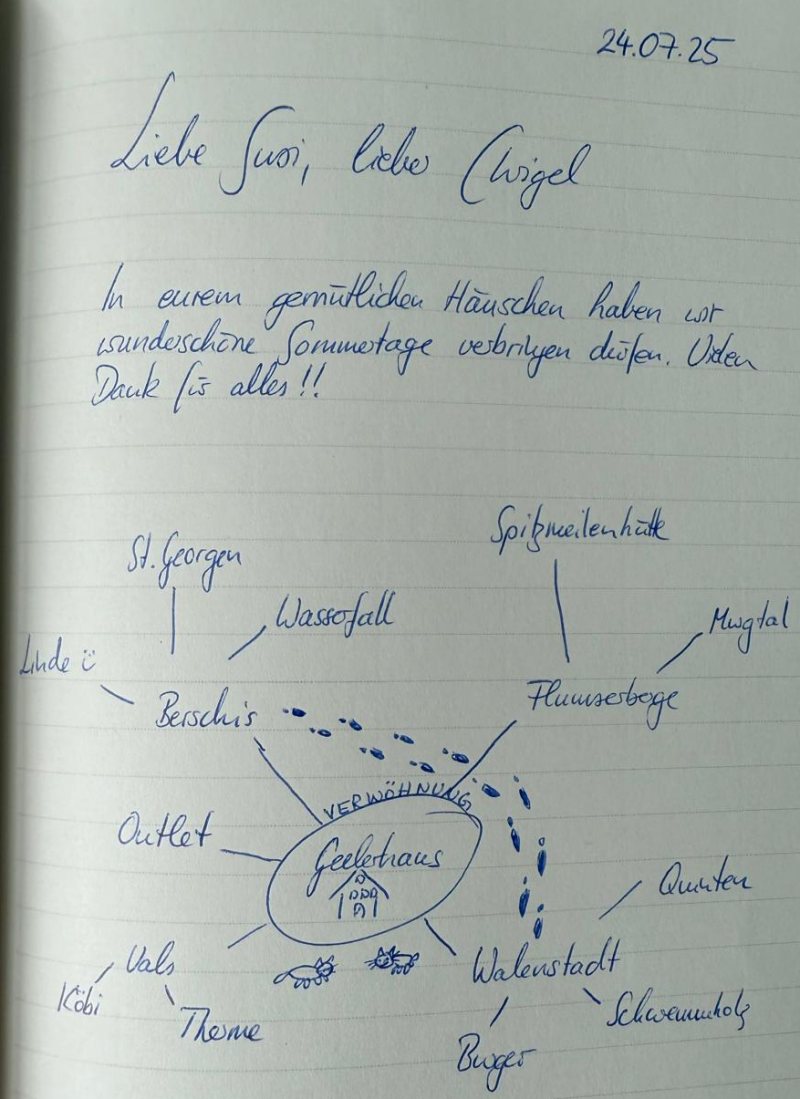 24.07.25
Liebe Susi, lieber Chrigel
In eurem gemütlichen Häuschen haben wir
wunderschöne Sommertage verbringen dürfen. Vielen
Dank für alles!!
St. Georgen
Spitzmeilenhütte
Wasserfall
Murgtal
Linde
Berschis
Flumserberge
VERWÖHNUNG
Outlet
Geelerhaus
Quinten
Vals
Walenstadt
Köbi
Therme
Schwemmholz
Burger